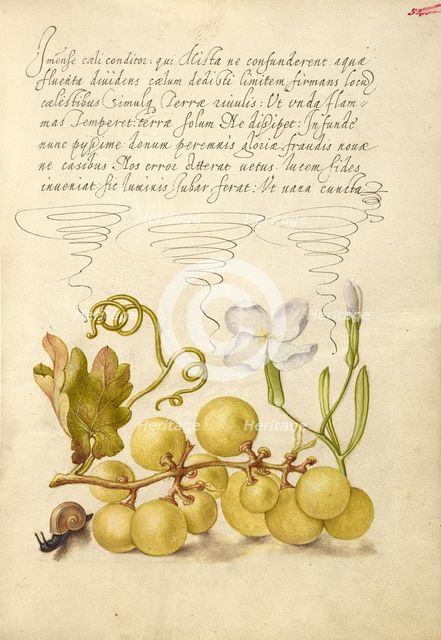 Imẽnse cæli conditor: qui Mista ne confunderent aquæ
fluenta diuidens cælum dedisti limitem firmans locũ
cœlestibus Simulq̧ Terræ riuulis: Vt vnda flam-
mas Temperet: terræ solum Ne dissipet: Infunde
nunc pyssime donum perennis gloriæ fraudis nouæ
ne casibus Nos error atterat vetus. lucem fides
inueniat: sic luminis Jubar ferat: Vt vana cuncta
Heritage
Heritage
Heritage
Heritage
Heritage
Heritage